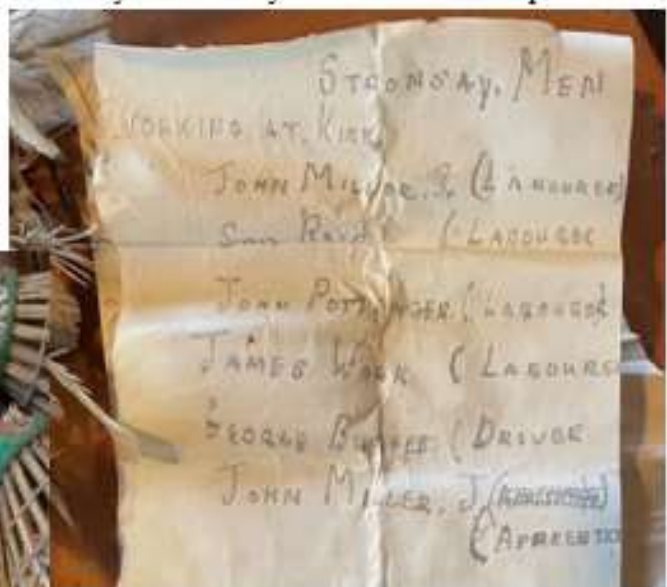 STRONSAY. MEN
WORKING AT. KIRK
JOHN MILLER. S. (LABOURER)
SAM REID (LABOURER
JOHN POTTINGER (LABOURER)
JAMES WORK (LABOURER
GEORGE (DRIVER
JOHN MILLER. J.
(APPRENTICE